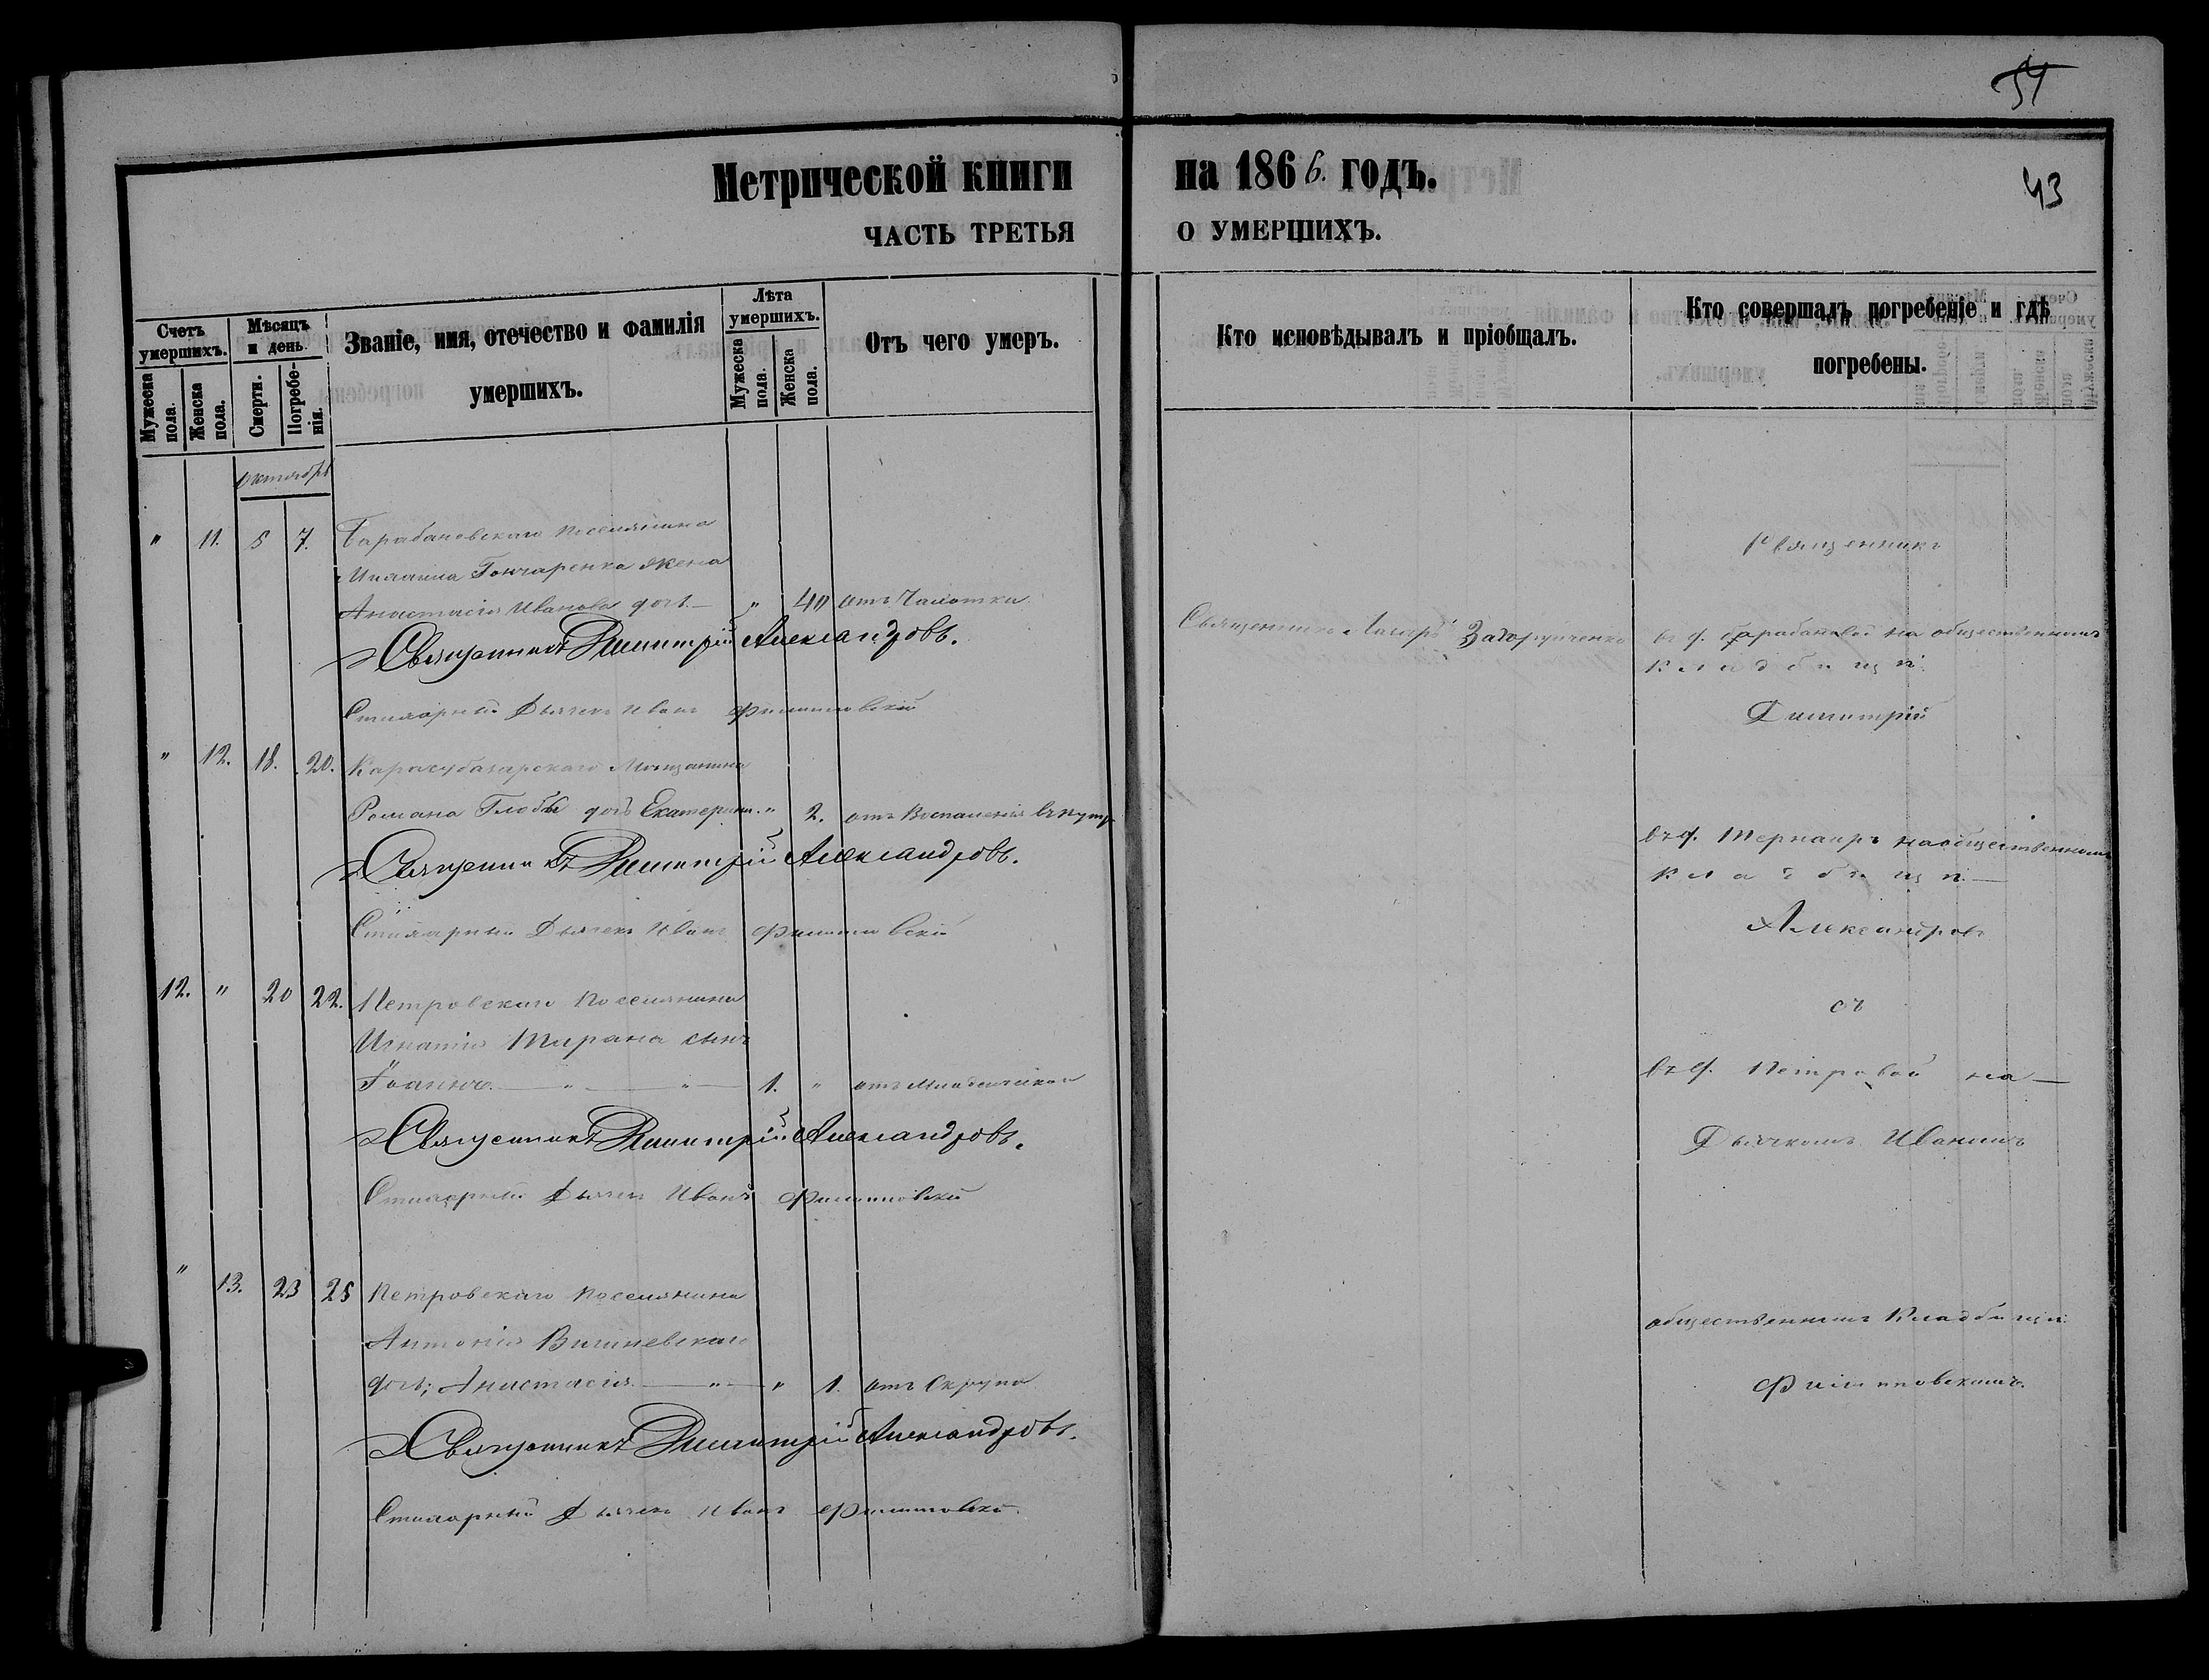 54
Метрической книги на 1866. годъ.
43
ЧАСТЬ ТРЕТЬЯ О УМЕРШИХЪ.
Счетъ умершихъ.
Мужеска пола.
Женска пола.
Мѣсяцъ и день
Смерти.
Погребенія.
Званіе, имя, отечество и фамилія умершихъ.
Лѣта умершихъ.
Мужеска пола.
Женска пола.
Отъ чего умеръ.
Кто исповѣдывалъ и пріобщалъ.
Кто совершалъ погребеніе и гдѣ погребены.
Октябрь
" 11. 5 7. Барабановскаго поселянина
Гончаренка жена
Анастасія Иванова дочь. — " 40 отъ Чахотки
Священникъ Димитрій Александровъ.
Стихарный Дьячекъ Иванъ Филипповскій
" 12. 18. 20. Карасубазарскаго Мѣщанина
Романа Глобы дочь Екатерина. " 2. отъ Воспаленія внутр.
Священникъ Димитрій Александровъ.
Стихарный Дьячекъ Иванъ Филипповскій
12. " 20 22. Петровскаго Поселянина
Игнатія Тирана сынъ
Іоаннъ. — " — " — 1. " отъ Младенческой
Священникъ Димитрій Александровъ.
Стихарный Дьячекъ Иванъ Филипповскій
" 13. 23 25 Петровскаго Поселянина
Антонія Вишневскаго
дочь; Анастасія. — " — " 1. отъ Крупа
Священникъ Димитрій Александровъ.
Стихарный Дьячекъ Иванъ Филипповскій
Священникъ
Священникъ Задорунченко
въ д. Барабановой на общественномъ
кладбищѣ.
Димитрій
въ д. Тернаиръ на общественномъ
кладбищѣ. —
Александровъ
съ
въ д. Петровой на —
Дьячкомъ Иваномъ
общественномъ Кладбищѣ.
Филипповскимъ.